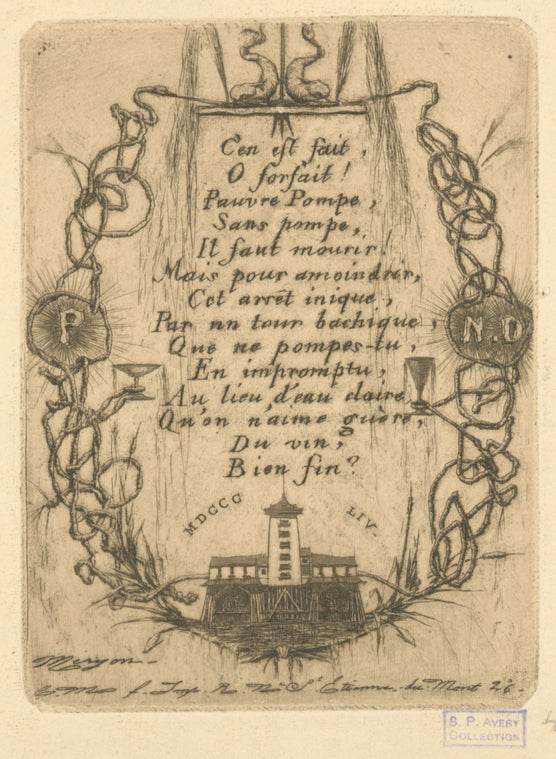 C'en est fait,
O forfait!
Pauvre Pompe,
Sans pompe,
Il faut mourir!
Mais pour amoindrir,
Cet arrêt inique,
Par un tour bachique,
Que ne pompes-tu,
En impromptu,
Au lieu d'eau claire
Qu'on n'aime guère,
Du vin,
Bien fin?
P
N.D
MDCCC
LIV.
Meryon
C. M. f. Imp. R. Nve St Etienne-du-Mont 26.
S. P. AVERY
COLLECTION